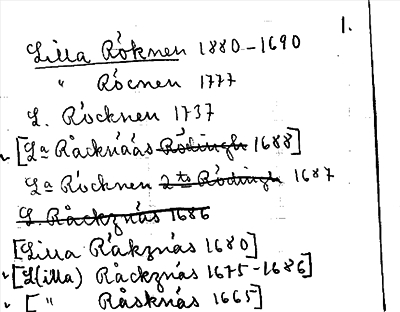 1.
Lilla Röknen 1880-1690
" Röcnen 1777
L. Röcknen 1737
[La Råcknäås Rödingh 1688]
La Röcknen 2ts Rödingh 1687
L. Råckznäs 1686
[Lilla Råkznäs 1680]
[L(illa) Råckznäs 1675-1686]
[ " Råsknäs 1665]